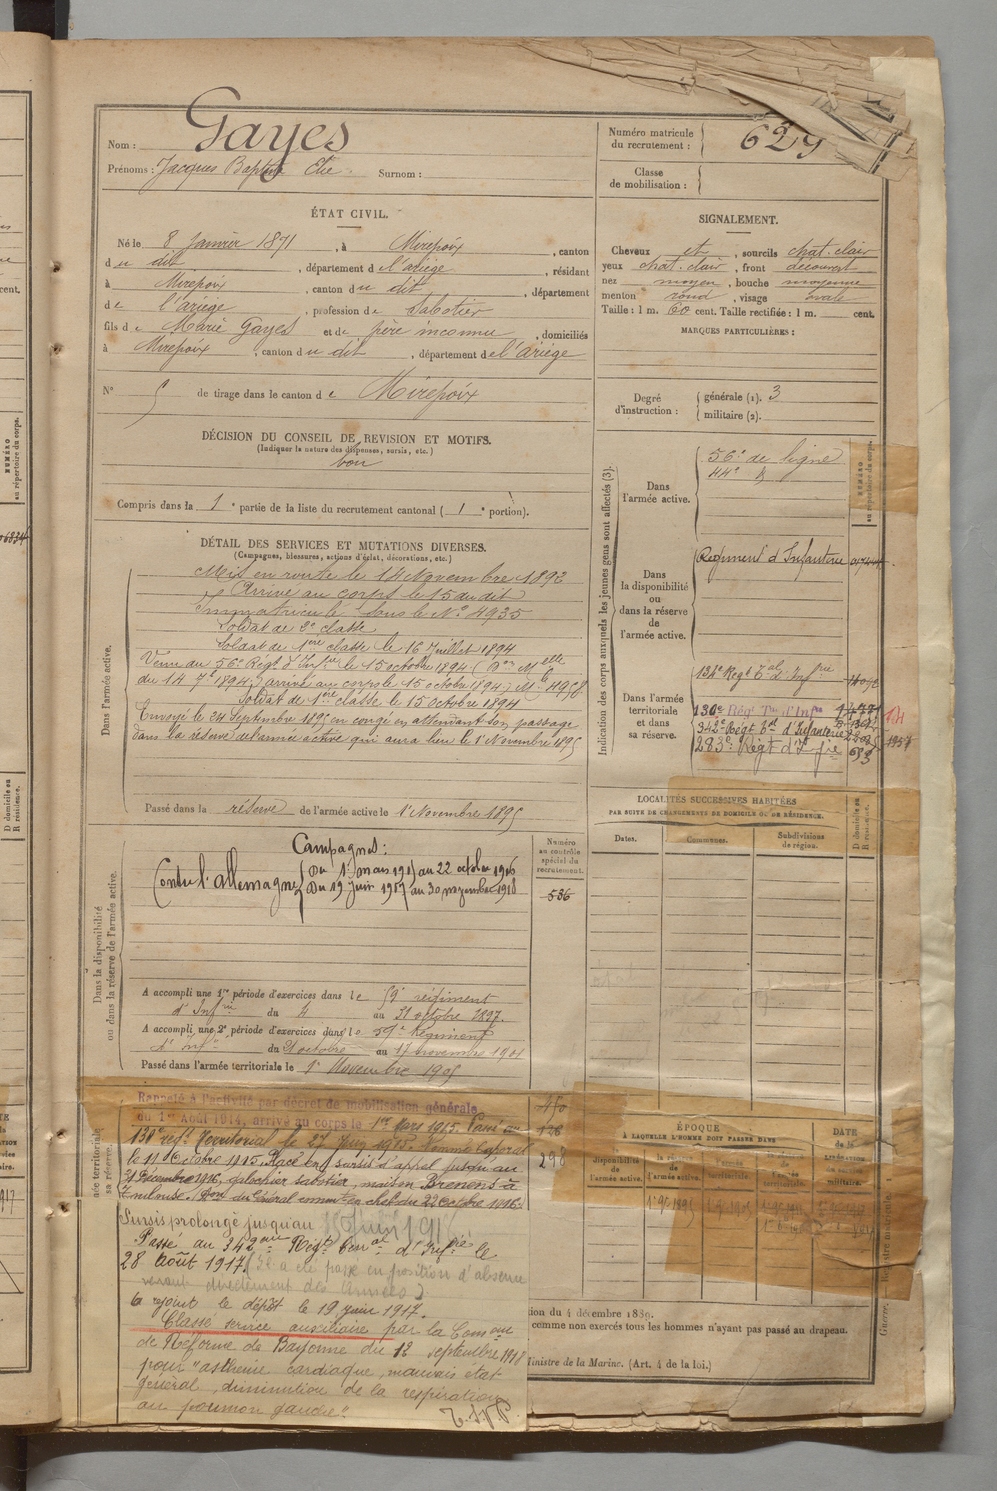 Nom : Gayes
Prénoms : Jacques Baptiste Elie Surnom :
Numéro matricule du recrutement : 629
Classe de mobilisation :
ÉTAT CIVIL.
Né le 8 Janvier 1871, à Mirepoix, canton
du dit, département de l'ariège, résidant
à Mirepoix, canton du dit, département
de l'ariège, profession de Sabotier
fils de Marie Gayes et de père inconnu, domiciliés
à Mirepoix, canton du dit, département de l'ariège
N° 5 de tirage dans le canton de Mirepoix
SIGNALEMENT.
Cheveux et, sourcils chat. clair
yeux chat. clair, front découvert
nez moyen, bouche moyenne
menton rond, visage ovale
Taille : 1 m. 60 cent. Taille rectifiée : 1 m. cent.
MARQUES PARTICULIÈRES :
Degré d'instruction : générale (1). 3
militaire (2).
DÉCISION DU CONSEIL DE REVISION ET MOTIFS.
(Indiquer la nature des dispenses, sursis, etc.)
bon
Compris dans la 1e partie de la liste du recrutement cantonal (1e portion).
DÉTAIL DES SERVICES ET MUTATIONS DIVERSES.
(Campagnes, blessures, actions d'éclat, décorations, etc.)
Dans l'armée active.
Mis en route le 14 Novembre 1892
Arrivé au corps le 15 du dit
Immatriculé sous le N° 4935
Soldat de 2e classe
Soldat de 1ère classe le 16 Juillet 1894
Venu au 56e Régt d'Infie le 15 octobre 1894 (Don Melle
du 14 7e 1894) arrivé au corps le 15 octobre 1894 Mle 4958
Soldat de 1ère classe le 15 Octobre 1894
Envoyé le 24 Septembre 1895 en congé en attendant son passage
dans la réserve de l'armée active qui aura lieu le 1er Novembre 1895
Passé dans la réserve de l'armée active le 1er Novembre 1895
Indication des corps auxquels les jeunes gens sont affectés (3).
NUMÉRO au répertoire du corps.
Dans l'armée active.
56e de ligne
44e
Dans la disponibilité ou dans la réserve de l'armée active.
Régiment d'Infanterie
Dans l'armée territoriale et dans sa réserve.
134e Régt Tal d'Infie
136e Régt Tal d'Infie
342e Régt Tal d'Infanterie
283e Régt d'Infie
LOCALITÉS SUCCESSIVES HABITÉES
PAR SUITE DE CHANGEMENTS DE DOMICILE OU DE RÉSIDENCE.
Dates. Communes. Subdivisions de région.
D domicile ou R résidence.
Dans la disponibilité ou dans la réserve de l'armée active.
Numéro au contrôle spécial du recrutement.
536
Campagnes :
Contre l'allemagne Du 1er mars 1915 au 22 octobre 1916
Du 19 Juin 1917 au 30 novembre 1918
A accompli une 1re période d'exercices dans le 59e régiment
d'Infrie du 4 au 31 octobre 1897.
A accompli une 2e période d'exercices dans le 59e Régiment
d'Infie du 21 octobre au 17 novembre 1901
Passé dans l'armée territoriale le 1er Novembre 1905
Rappelé à l'activité par décret de mobilisation générale
du 1er Août 1914, arrivé au corps le 1er Mars 1915. Passé au
136e régt Territorial le 27 Juin 1915. Nommé Caporal
le 11 Octobre 1915. Placé en sursis d'appel jusqu'au
31 Décembre 1916, galochier sabotier, maison à
Toulouse. Don du Général comment en chef du 22 Octobre 1916.
298
Sursis prolongé jusqu'au
Passé au 342ème Régt Terral d'Infie le
28 Août 1917 (Il a été passé en position d'absence
venant directement des Armées)
a rejoint le dépôt le 19 juin 1917.
Classé service auxiliaire par la Comon
de Réforme de Bayonne du 12 septembre 1918
pour "asthénie cardiaque, mauvais état
général, diminution de la respiration
au poumon gauche".
T.S.V.P.
ÉPOQUE
À LAQUELLE L'HOMME DOIT PASSER DANS
DATE de la LIBÉRATION du service militaire.
tion du 4 décembre 1889.
comme non exercés tous les hommes n'ayant pas passé au drapeau.
Ministre de la Marine. (Art. 4 de la loi.)